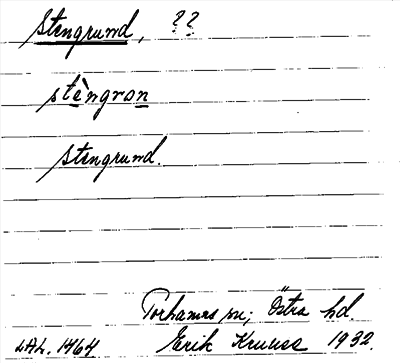 Stengrund, ??
stèngron
Stengrund.
Torhamns sn; Östra hd.
LAL. 1464 Erik Kruuse 1932